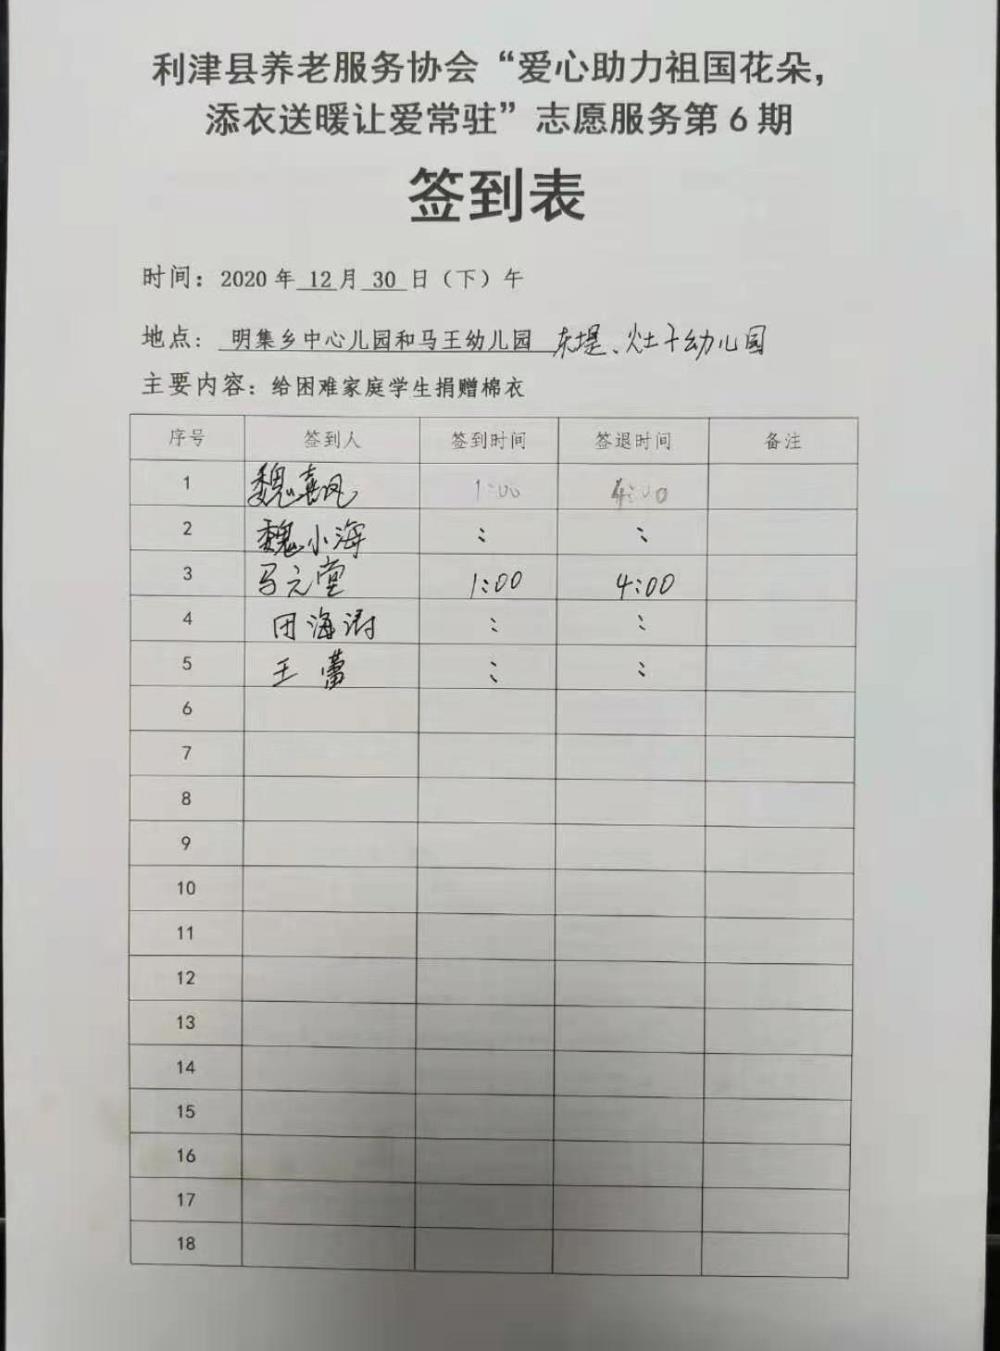 利津县养老服务协会“爱心助力祖国花朵，
添衣送暖让爱常驻”志愿服务第6期
签到表
时间：2020年 12 月 30 日（下）午
地点： 明集乡中心儿园和马王幼儿园 东堤、灶子幼儿园
主要内容：给困难家庭学生捐赠棉衣
序号 签到人 签到时间 签退时间 备注
1 魏喜凤 1:00 4:00
2 魏小海 : :
3 马元堂 1:00 4:00
4 田海涛 : :
5 王蕾 : :
6
7
8
9
10
11
12
13
14
15
16
17
18